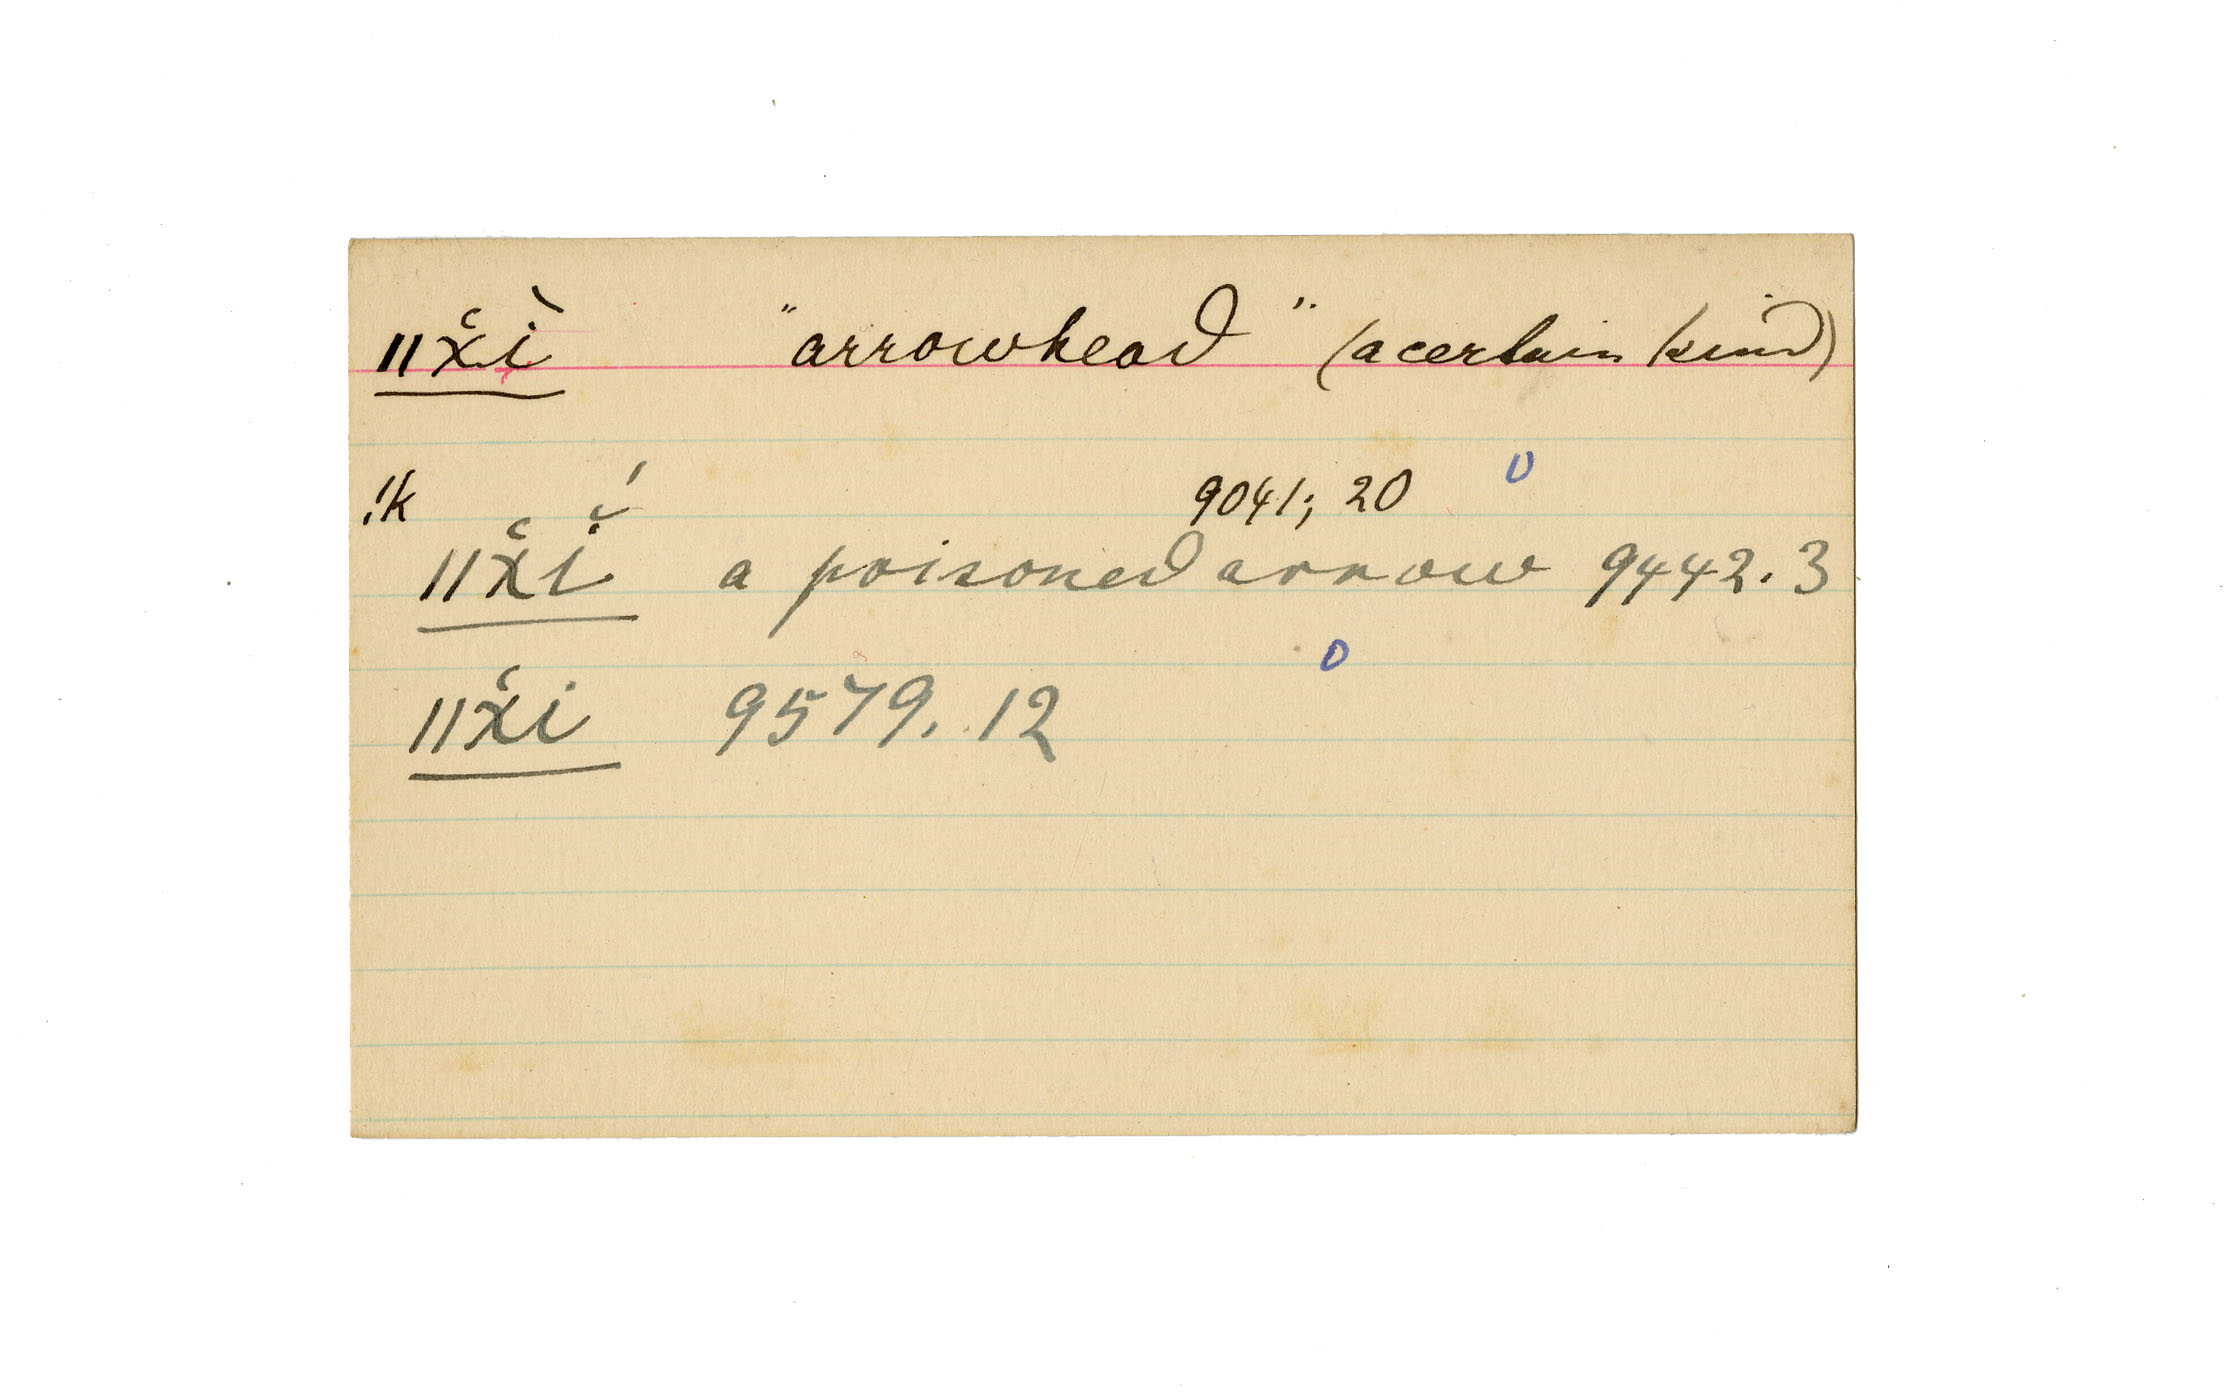 ǁx̆ì "arrowhead" (a certain kind)
!k 9041; 20
ǁx̆ĭ́ a poisoned arrow 9442.3
ǁx̆i 9579.12